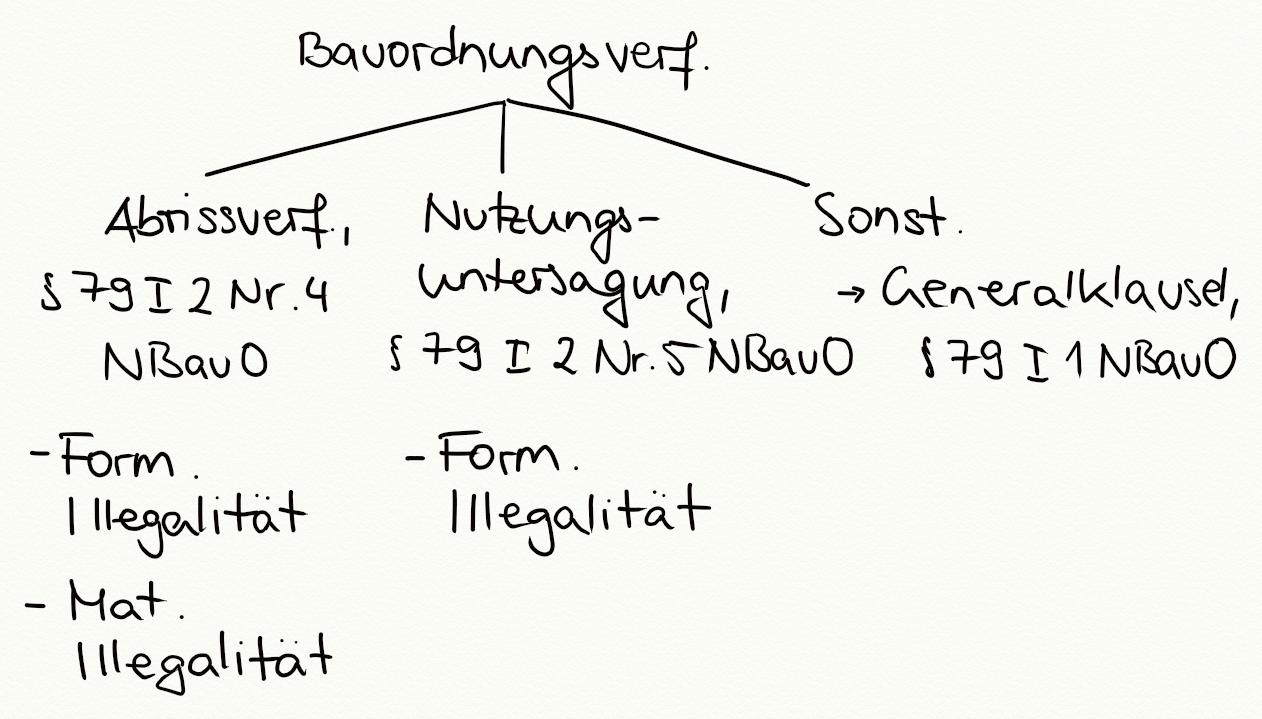 Bauordnungsverf.
Abrissverf.,
§ 79 I 2 Nr. 4
NBauO
- Form.
Illegalität
- Mat.
Illegalität
Nutzungs-
untersagung,
§ 79 I 2 Nr. 5 NBauO
- Form.
Illegalität
Sonst.
→ Generalklausel,
§ 79 I 1 NBauO